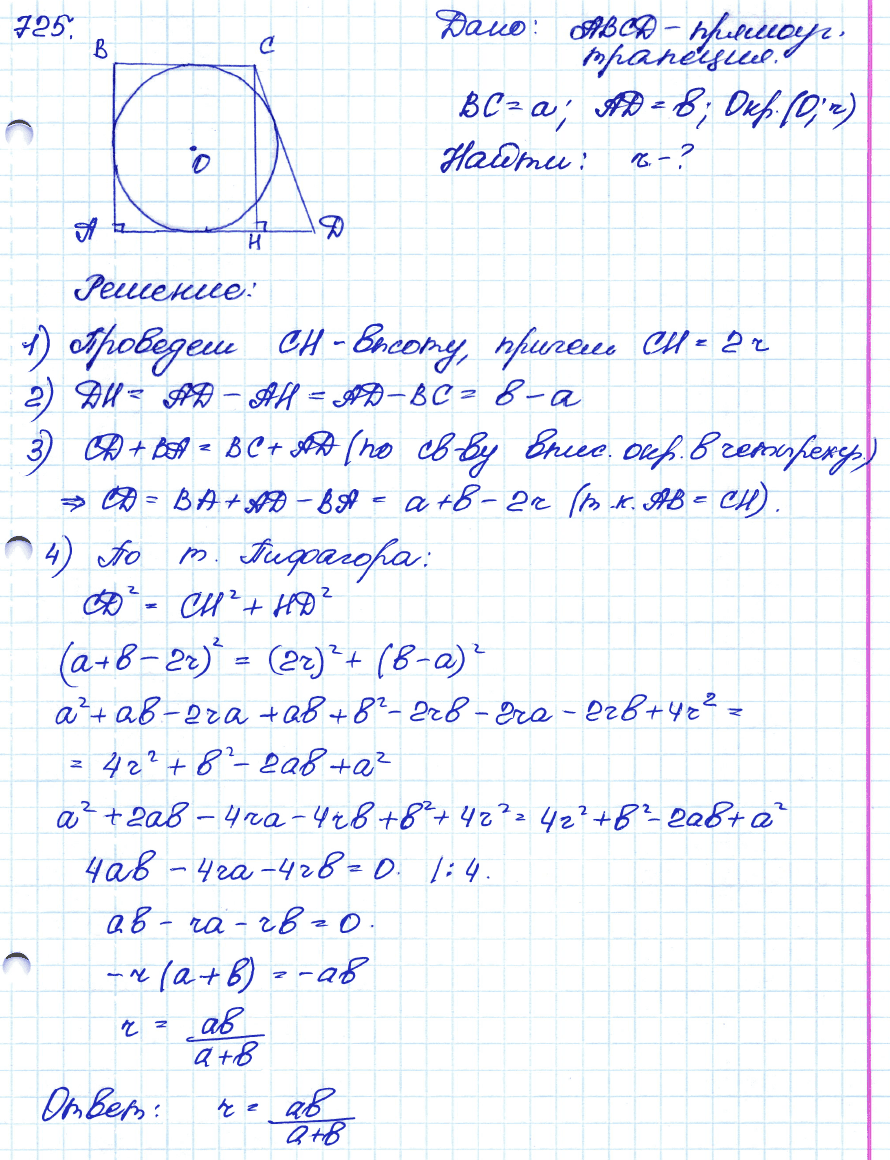 725.
Дано: ABCD – прямоуг.
трапеция.
BC = a; AD = в; Окр.(O; r)
Найти: r - ?
B
C
O
A
H
D
Решение:
1) Проведем CH - высоту, причем CH = 2r
2) DH = AD – AH = AD – BC = в – a
3) CD + BA = BC + AD (по св-ву впис. окр. в четырехуг.)
⇒ CD = BA + AD – BA = a + в – 2r (т.к. AB = CH).
4) По т. Пифагора:
CD² = CH² + HD²
(a + в – 2r)² = (2r)² + (в – a)²
a² + aв – 2ra + aв + в² – 2rв – 2ra – 2rв + 4r² =
= 4r² + в² – 2aв + a²
a² + 2aв – 4ra – 4rв + в² + 4r² = 4r² + в² – 2aв + a²
4aв – 4ra – 4rв = 0. /: 4.
aв – ra – rв = 0.
– r (a + в) = – aв
r = aв / a + в
Ответ: r = aв / a + в